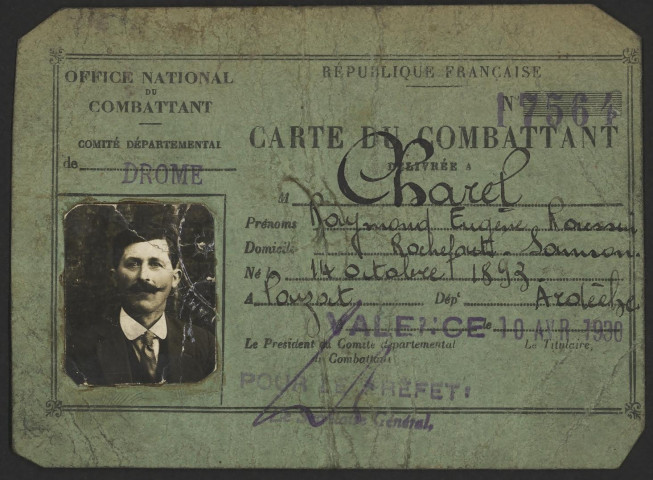 OFFICE NATIONAL
DU
COMBATTANT
COMITÉ DÉPARTEMENTAL
de DROME
RÉPUBLIQUE FRANÇAISE
N 17564
CARTE DU COMBATTANT
DÉLIVRÉE A
M Charel
Prénoms Raymond Eugène
Domicile Rochefort Samson
Né le 14 octobre 1893
A Pouzat Dép' Ardèche
VALENCE le 10 AVR 1936
Le Président du Comité départemental Le Titulaire,
du Combattant
POUR LE PRÉFET:
Le Secrétaire Général,